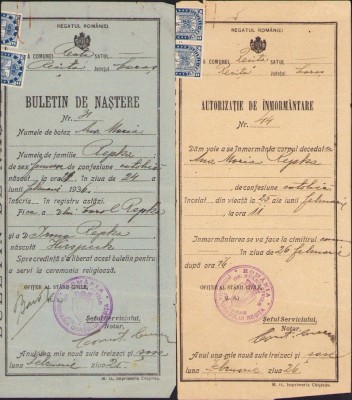 REGATUL ROMÂNIEI
A COMUNEI Resita SATUL
Resita Județul Caraș
BULETIN DE NAȘTERE
Nr.
Numele de botez Ana Maria
Numele de familie Repka
de sex femeiesc de confesiune catolică
născut la ora în ziua de 24 a
lunii februarie 1936.
Înscris în registru astăzi.
Fiica a D lui Carol Repka
și a D Irma Repka
născută
Spre credință s'a liberat acest buletin pentru
a servi la ceremonia religioasă.
OFIȚER AL STĂRII CIVILE,
Șeful Serviciului,
Notar,
Anul una mie nouă sute treizeci și șase
luna februarie ziua 25.
M. O., Imprimeria Chișinău.
REGATUL ROMÂNIEI
A COMUNEI Resita SATUL
Resita Județul Caraș
AUTORIZAȚIE DE ÎNMORMÂNTARE
Nr. 44
Dăm voie a se înmormânta corpul decedat
Ana Maria Repka
de confesiune catolică
încetat din viață 25 ale lunii februarie
la ora 11
Înmormântarea se va face la cimitirul
în ziua de 26 februarie
după ora 16
OFIȚER AL STĂRII CIVILE,
ROMÂNIA
Șeful Serviciului,
Notar,
Anul una mie nouă sute treizeci și șase
luna februarie ziua 26.
M. O., Imprimeria Chișinău.